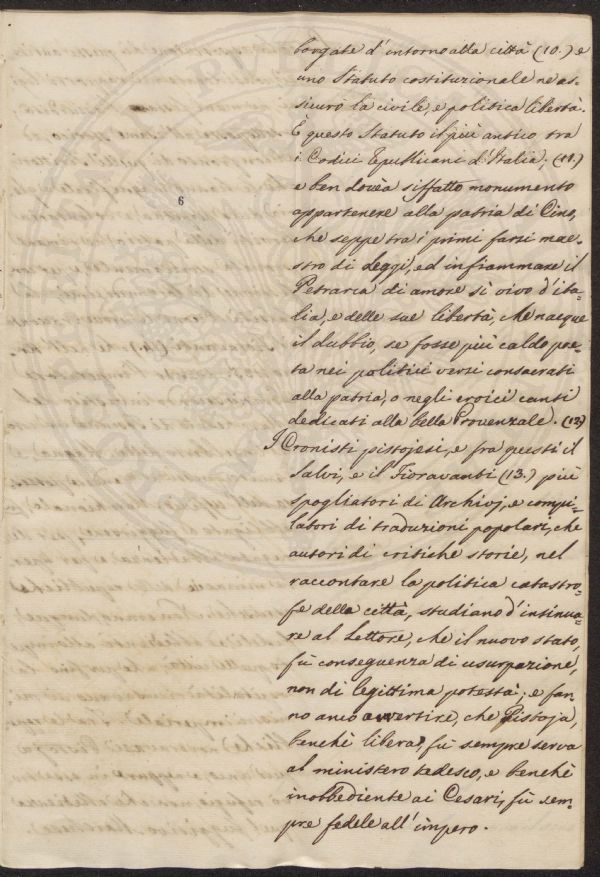 borgate d'intorno alla città (10.) e
uno Statuto costituzionale ne as-
sicurò la civile, e politica libertà.
È questo Statuto il più antico tra
i Codici Repubblicani d'Italia; (11.)
e ben dovea siffatto monumento
6
appartenere alla patria di Cino,
che seppe tra i primi farsi mae-
stro di Leggi, ed infiammare il
Petrarca di amore sì vivo d'ita-
lia, e delle sue libertà, che nacque
il dubbio, se fosse più caldo poe-
ta nei politici versi consacrati
alla patria, o negli eroici canti
dedicati alla bella Provenzale. (12)
I Cronisti pistojesi, e fra questi il
Salvi, e il Fioravanti (13.) più
spogliatori di Archivj, e compi-
latori di traduzioni popolari, che
autori di critiche storie, nel
raccontare la politica catastro-
fe della città, studiano d'insinua-
re al Lettore, che il nuovo stato,
fù conseguenza di usurpazione,
non di legittima potestà; e fan-
no anco avvertire, che Pistoja,
benchè libera, fù sempre serva
al ministero tedesco, e benchè
inobbediente ai Cesari, fù sem-
pre fedele all'impero.